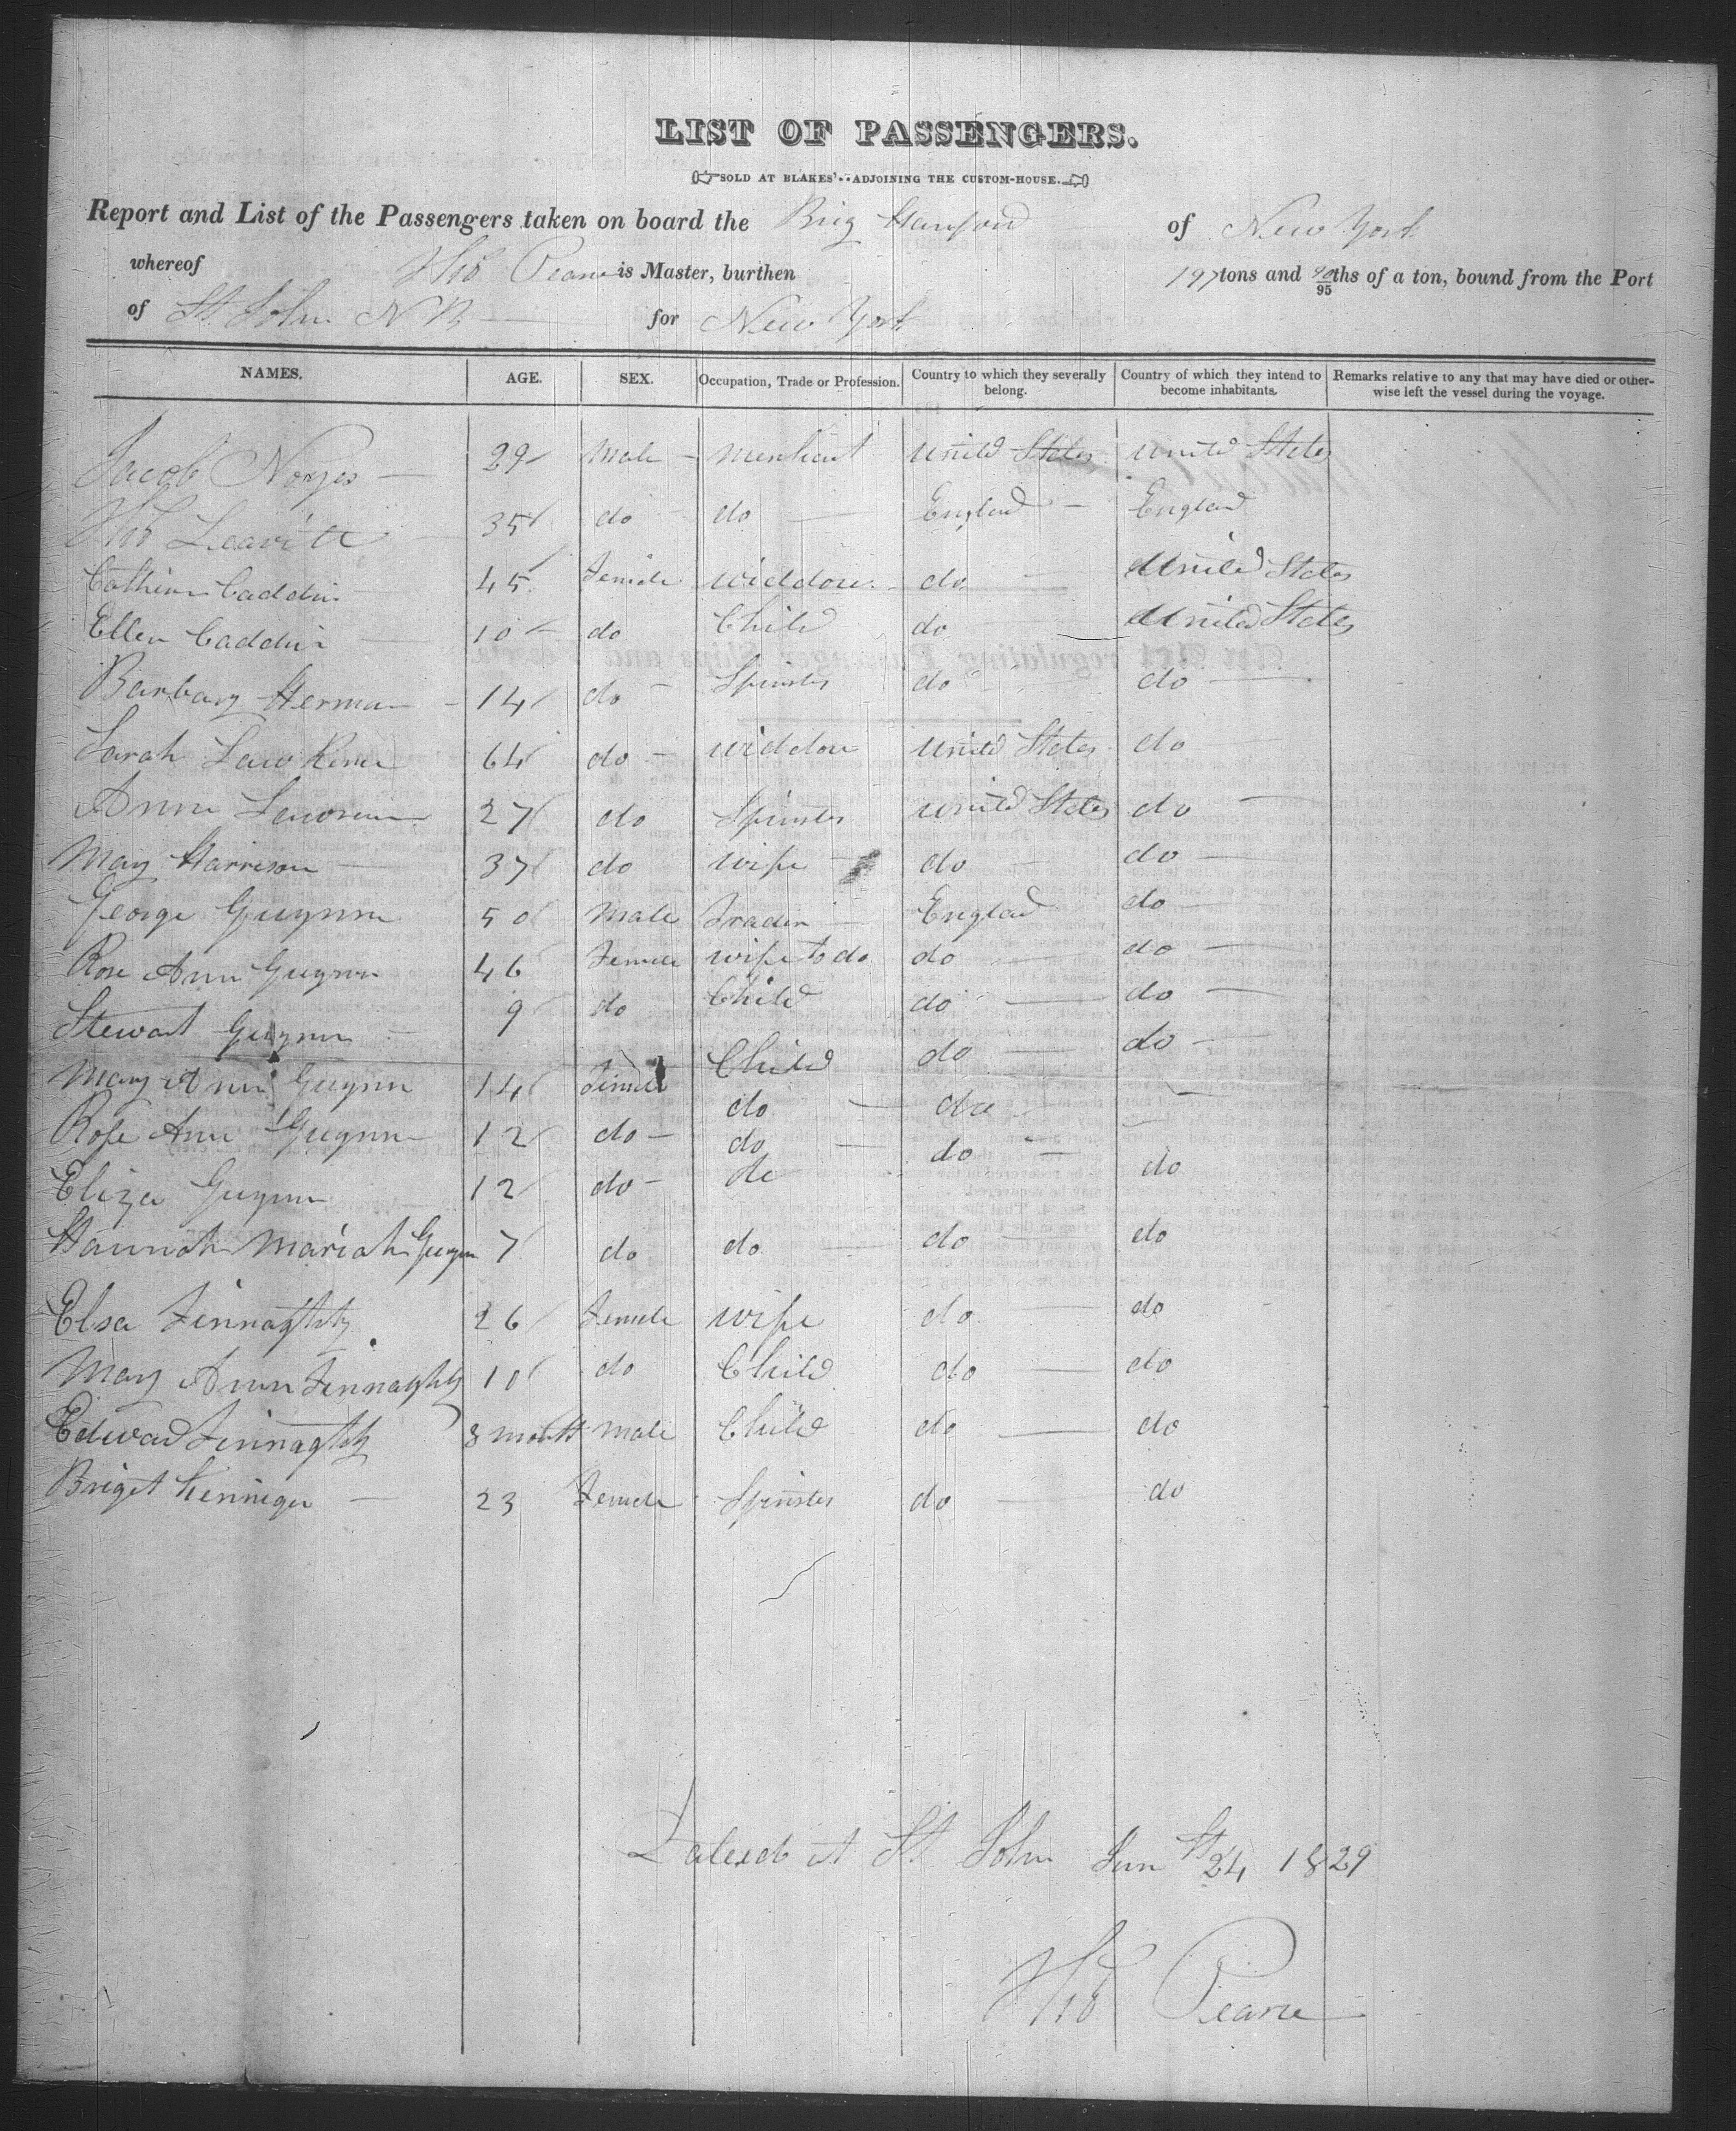 LIST OF PASSENGERS.
SOLD AT BLAKES'..ADJOINING THE CUSTOM-HOUSE.
Report and List of the Passengers taken on board the Brig Hanford of New York
whereof Thos Pearce is Master, burthen 197 tons and 90/95ths of a ton, bound from the Port
of St. John N B for New York
NAMES. AGE. SEX. Occupation, Trade or Profession. Country to which they severally belong. Country of which they intend to become inhabitants. Remarks relative to any that may have died or otherwise left the vessel during the voyage.
Jacob Noyes 29 Male merchant United States United States
Thos Leavitt 35 do do England England
Cathien Caddin 45 Female widdow do United States
Ellen Caddin 10 do Child do United States
Barbary Herman 14 do Spinster do do
Sarah Law 64 do widdow United States do
Ann 27 do Spinster United States do
Mary Harrison 37 do wife do do
George Guynn 50 Male Trader England do
Rose Ann Guynn 46 Female wife to do do do
Stewart Guynn 9 do Child do do
Mary Ann Guynn 14 Female Child do do
Rose Ann Guynn 12 do do do
Eliza Guynn 12 do do do do
Hannah Mariah Guynn 7 do do do do
Elsa Finnaghty 26 Female wife do do
Mary Ann Finnaghty 10 do Child do do
Edward Finnaghty 8 month Male Child do do
Briget 23 Female Spinster do do
Dated at St. John Jun 24 1829
Thos Pearce